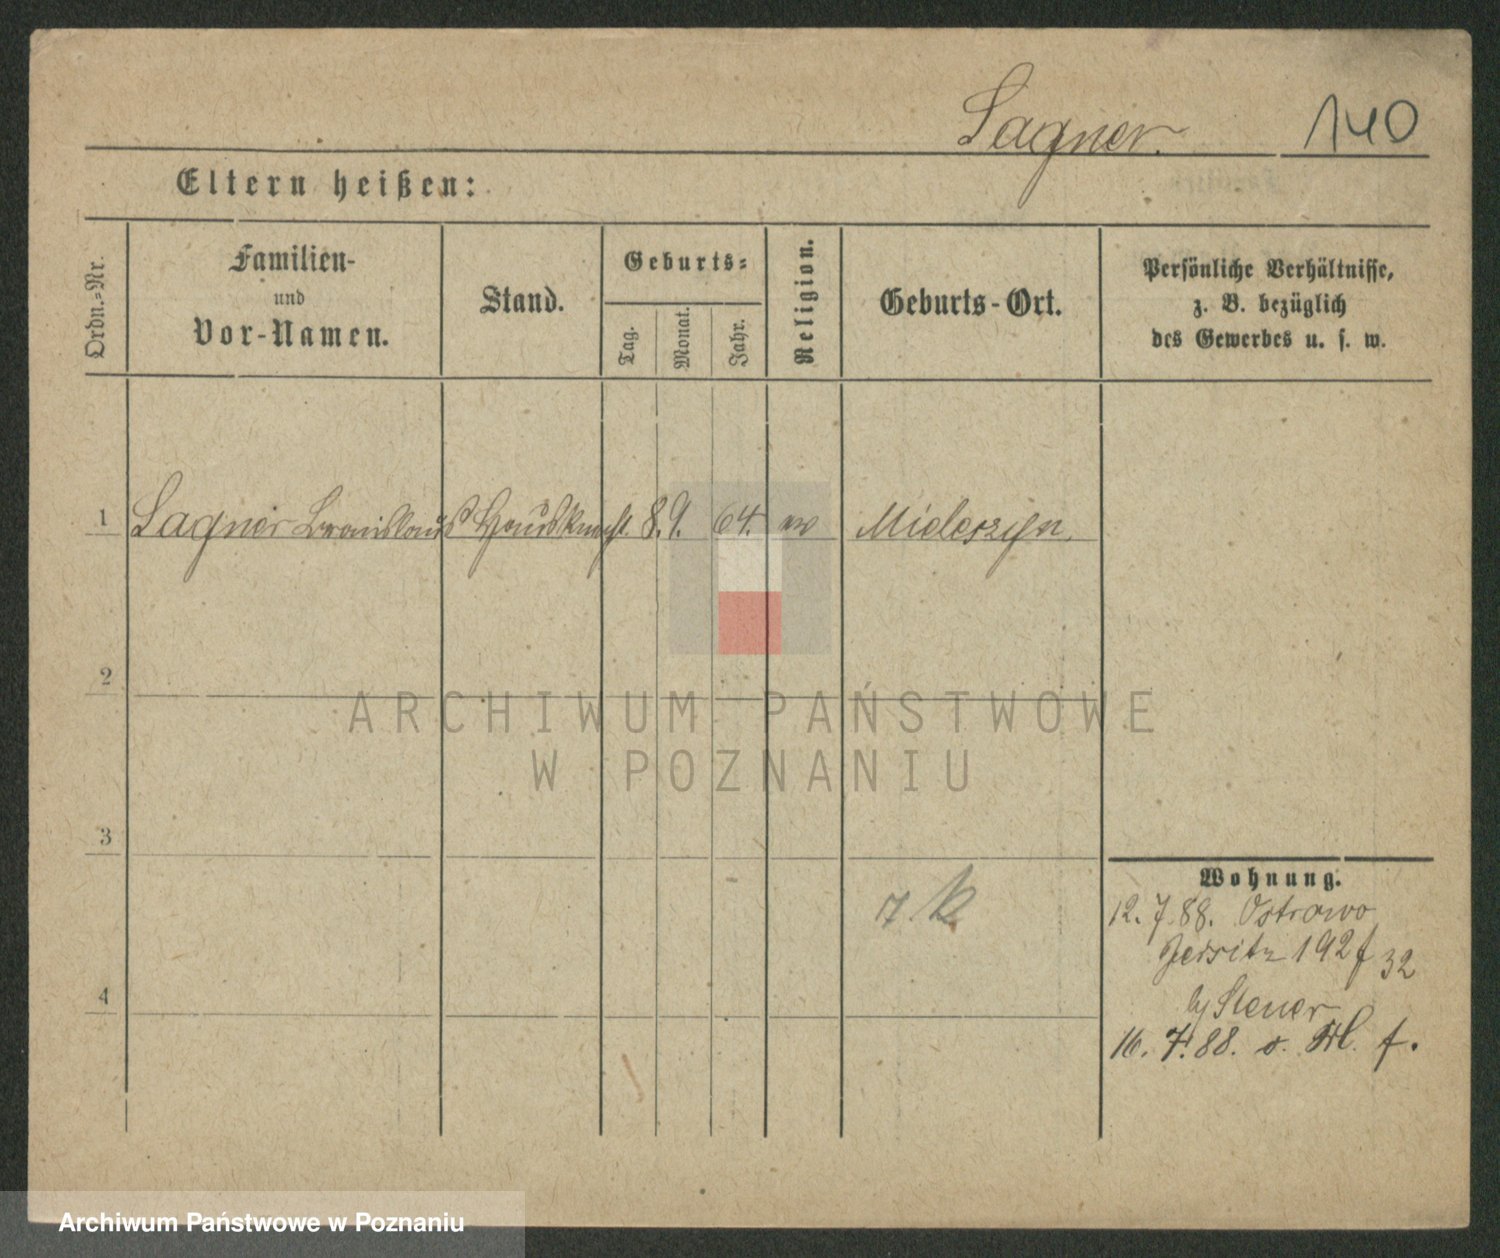 Sagner. 140
Eltern heißen:
Ordn.=Nr.
Familien-
und
Vor-Namen.
Stand.
Geburts=
Tag.
Monat.
Jahr.
Religion.
Geburts-Ort.
Persönliche Verhältnisse,
z. B. bezüglich
des Gewerbes u. s. w.
1 Sagner Bronislaus Hausknecht 8. 9. 64. Mieleszyn
2
ARCHIWUM PAŃSTWOWE
W POZNANIU
3
Wohnung.
12. 7. 88. Ostrowo
Jersitz 192 f 32
4
16. 7. 88.
Archiwum Państwowe w Poznaniu